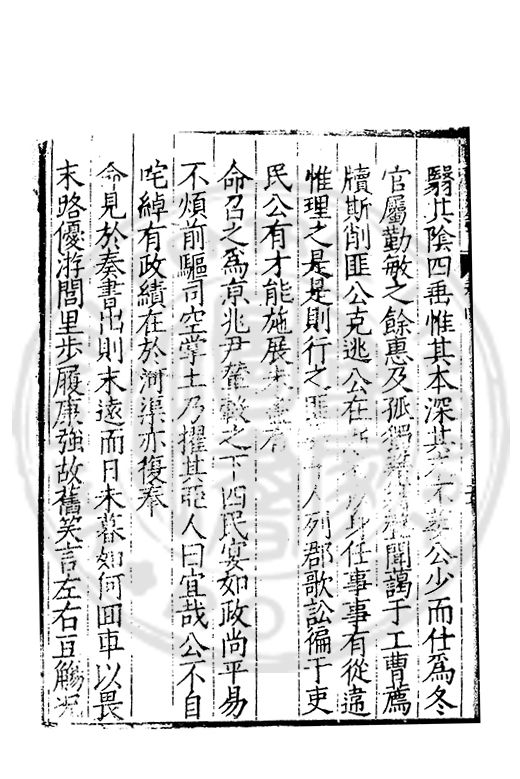 翳其陰四垂惟其本深其公少而仕爲冬
官屬勤敏之餘惠及孤聞藹于工曹薦
牘斯削匪公克逃公在身任事事有從違
惟理之是是則行之匪人列郡歌訟徧于吏
民公有才能施展
命召之爲京兆尹輦轂之下四民宴如政尚平易
不煩前驅司空掌土乃擢其亞人曰宜哉公不自
咤綽有政績在於河渠亦復奉
命見於奏書出則未遠而日未暮如何回車以畏
末路優游閭里步履康強故舊笑言左右豆觴况